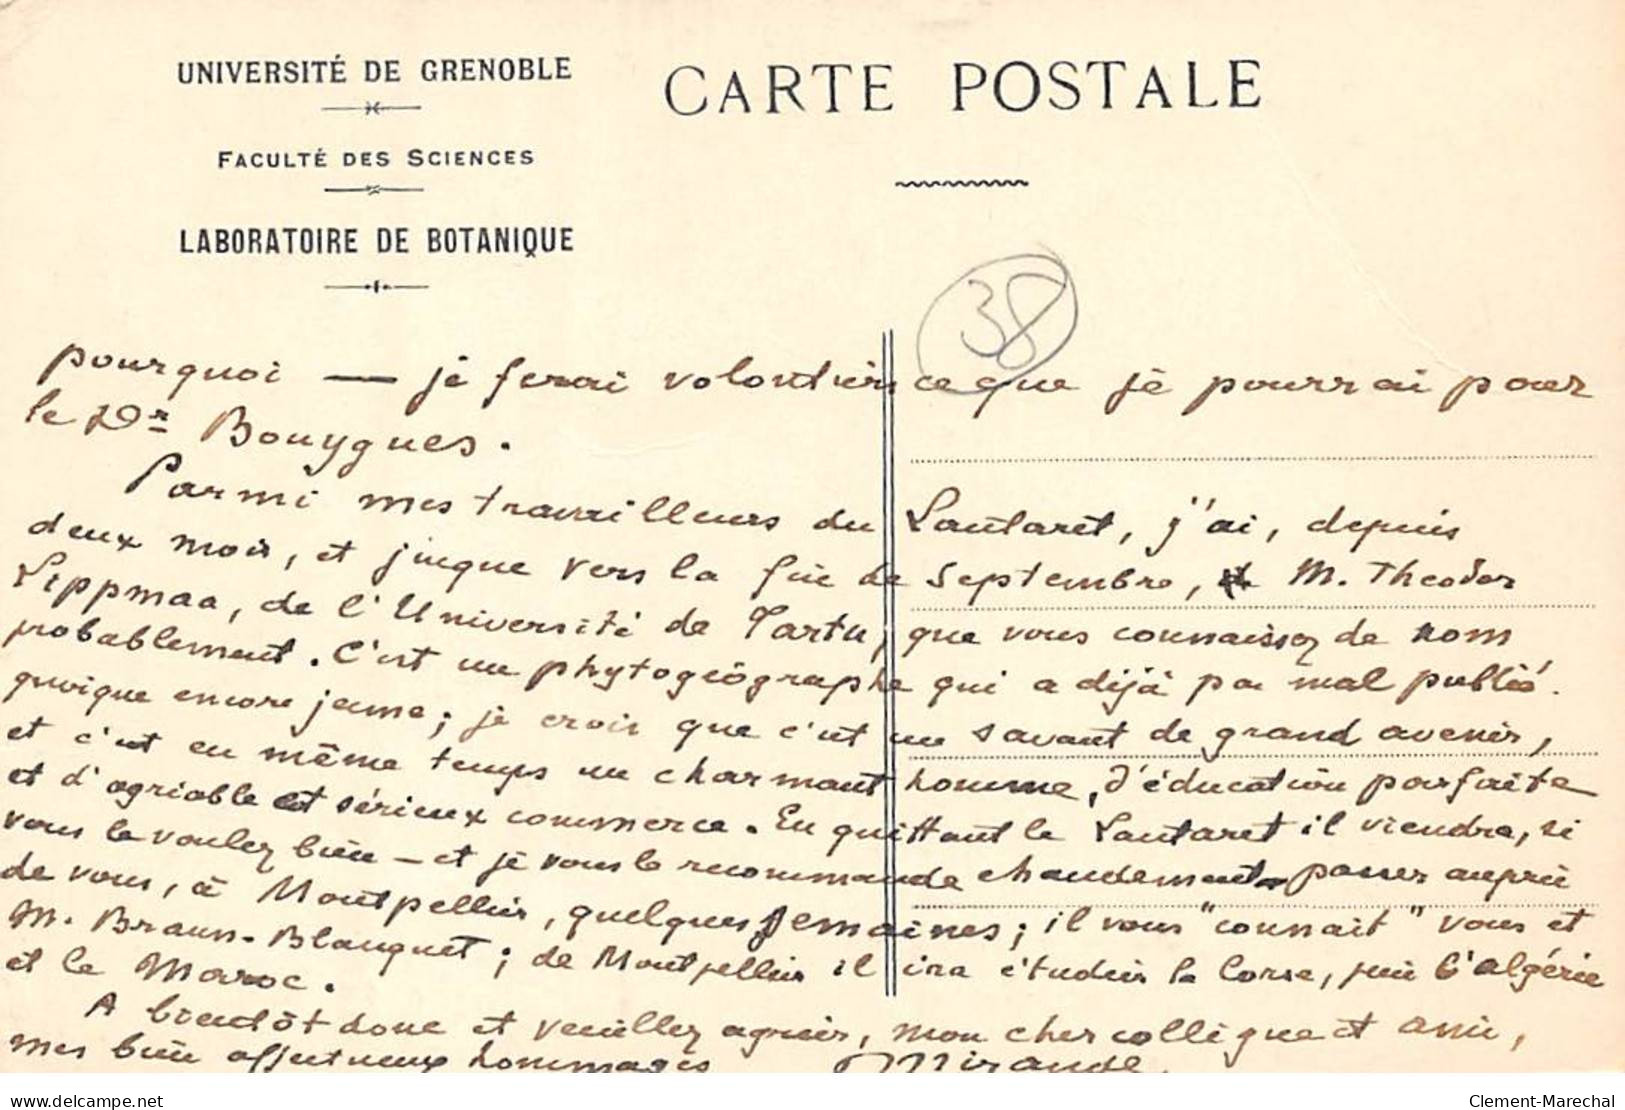 UNIVERSITÉ DE GRENOBLE
FACULTÉ DES SCIENCES
LABORATOIRE DE BOTANIQUE
CARTE POSTALE
38
pourquoi — je ferai volontiers ce que je pourrai pour
le Dr Bouygues.
Parmi mes travailleurs du Lautaret, j'ai, depuis
deux mois, et jusque vers la fin de septembre, M. Theodor
Lippmaa, de l'Université de Tartu, que vous connaissez de nom
probablement. C'est un phytogéographe qui a déjà pas mal publié.
quoique encore jeune; je crois que c'est un savant de grand avenir,
et c'est en même temps un charmant homme, d'éducation parfaite
et d'agréable et sérieux commerce. En quittant le Lautaret il viendra, si
vous le voulez bien — et je vous le recommande chaudement — passer auprès
de vous, à Montpellier, quelques semaines; il vous "connait" vous et
M. Braun-Blanquet; de Montpellier il ira étudier la Corse, puis l'Algérie
et le Maroc.
A bientôt donc et veuillez agréer, mon cher collègue et ami,
mes bien affectueux hommages
Mirande.
www.delcampe.net
Clement-Marechal